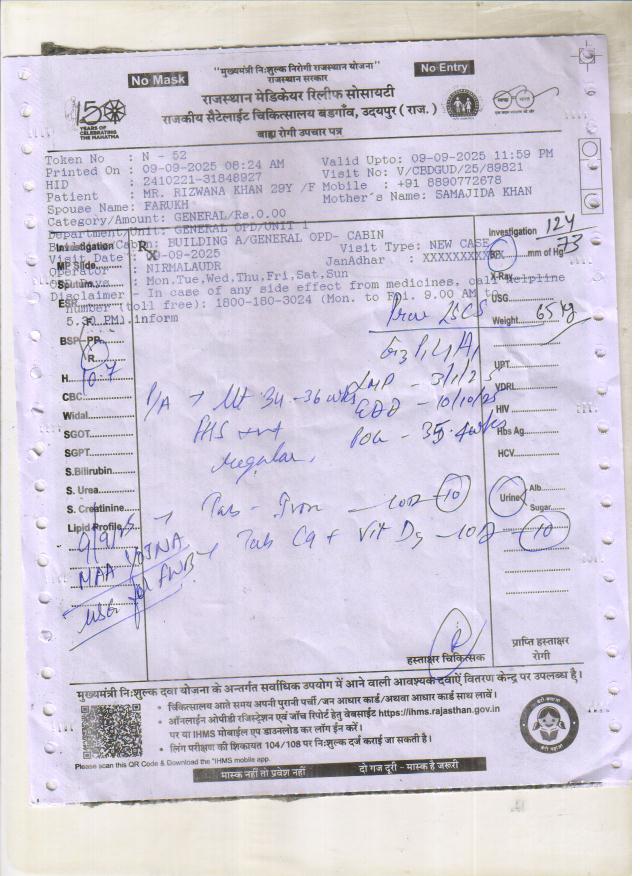 "मुख्यमंत्री निःशुल्क निरोगी राजस्थान योजना"
राजस्थान सरकार
No Mask
No Entry
राजस्थान मेडिकेयर रिलीफ सोसायटी
राजकीय सैटेलाईट चिकित्सालय बडगाँव, उदयपुर ( राज. )
बाह्य रोगी उपचार पत्र
150
YEARS OF
CELEBRATING
THE MAHATMA
Token No : N - 52
Printed On : 09-09-2025 08:24 AM Valid Upto: 09-09-2025 11:59 PM
HID : 2410221-31848927 Visit No: V/CBDGUD/25/89821
Patient : MR. RIZWANA KHAN 29Y /F Mobile : +91 8890772678
Spouse Name: FARUKH Mother's Name: SAMAJIDA KHAN
Category/Amount: GENERAL/Rs.0.00
Department/Unit: GENERAL OPD/UNIT 1
BUILDING A/GENERAL OPD- CABIN
Visit Type: NEW CASE
Visit Date : 09-09-2025 JanAdhar : XXXXXXXXX
Operator : NIRMALAUDR
: Mon,Tue,Wed,Thu,Fri,Sat,Sun
Disclaimer - In case of any side effect from medicines, call helpline
number (toll free): 1800-180-3024 (Mon. to Fri. 9.00 AM to
5.30 PM).inform
Investigation
MP Slide
Sputum
ESR
BSP-PP
R.
H 10.7
CBC
Widal
SGOT
SGPT
S.Bilirubin
S. Urea
S. Creatinine
Lipid Profile
9/9/25
MAA VOJNA
USG for FWB
Prev LSCS
G3 P1 L1 A1
LMP - 3/1/25
EDD - 10/10/25
POG - 35.4wks
P/A → Ut 34-36 wks
FHS
regular
→ Tab - Iron - 10D 10
Tab Ca + Vit D3 - 10D - 10
Investigation
124
73
mm of Hg
X-Ray
USG
Weight 65 kg
UPT
VDRL
HIV
Hbs Ag.
HCV
Urine Alb.
Sugar
हस्ताक्षर चिकित्सक
प्राप्ति हस्ताक्षर
रोगी
मुख्यमंत्री निःशुल्क दवा योजना के अन्तर्गत सर्वाधिक उपयोग में आने वाली आवश्यक दवाऐं वितरण केन्द्र पर उपलब्ध है।
• चिकित्सालय आते समय अपनी पुरानी पर्ची/जन आधार कार्ड/अथवा आधार कार्ड साथ लावें।
• ऑनलाईन ओपीडी रजिस्ट्रेशन एवं जाँच रिपोर्ट हेतु वेबसाईट https://ihms.rajasthan.gov.in
पर या IHMS मोबाईल एप डाउनलोड कर लॉग ईन करें।
• लिंग परीक्षण की शिकायत 104/108 पर निःशुल्क दर्ज कराई जा सकती है।
Please scan this QR Code & Download the "IHMS mobile app.
मास्क नहीं तो प्रवेश नहीं
दो गज दूरी - मास्क है जरूरी